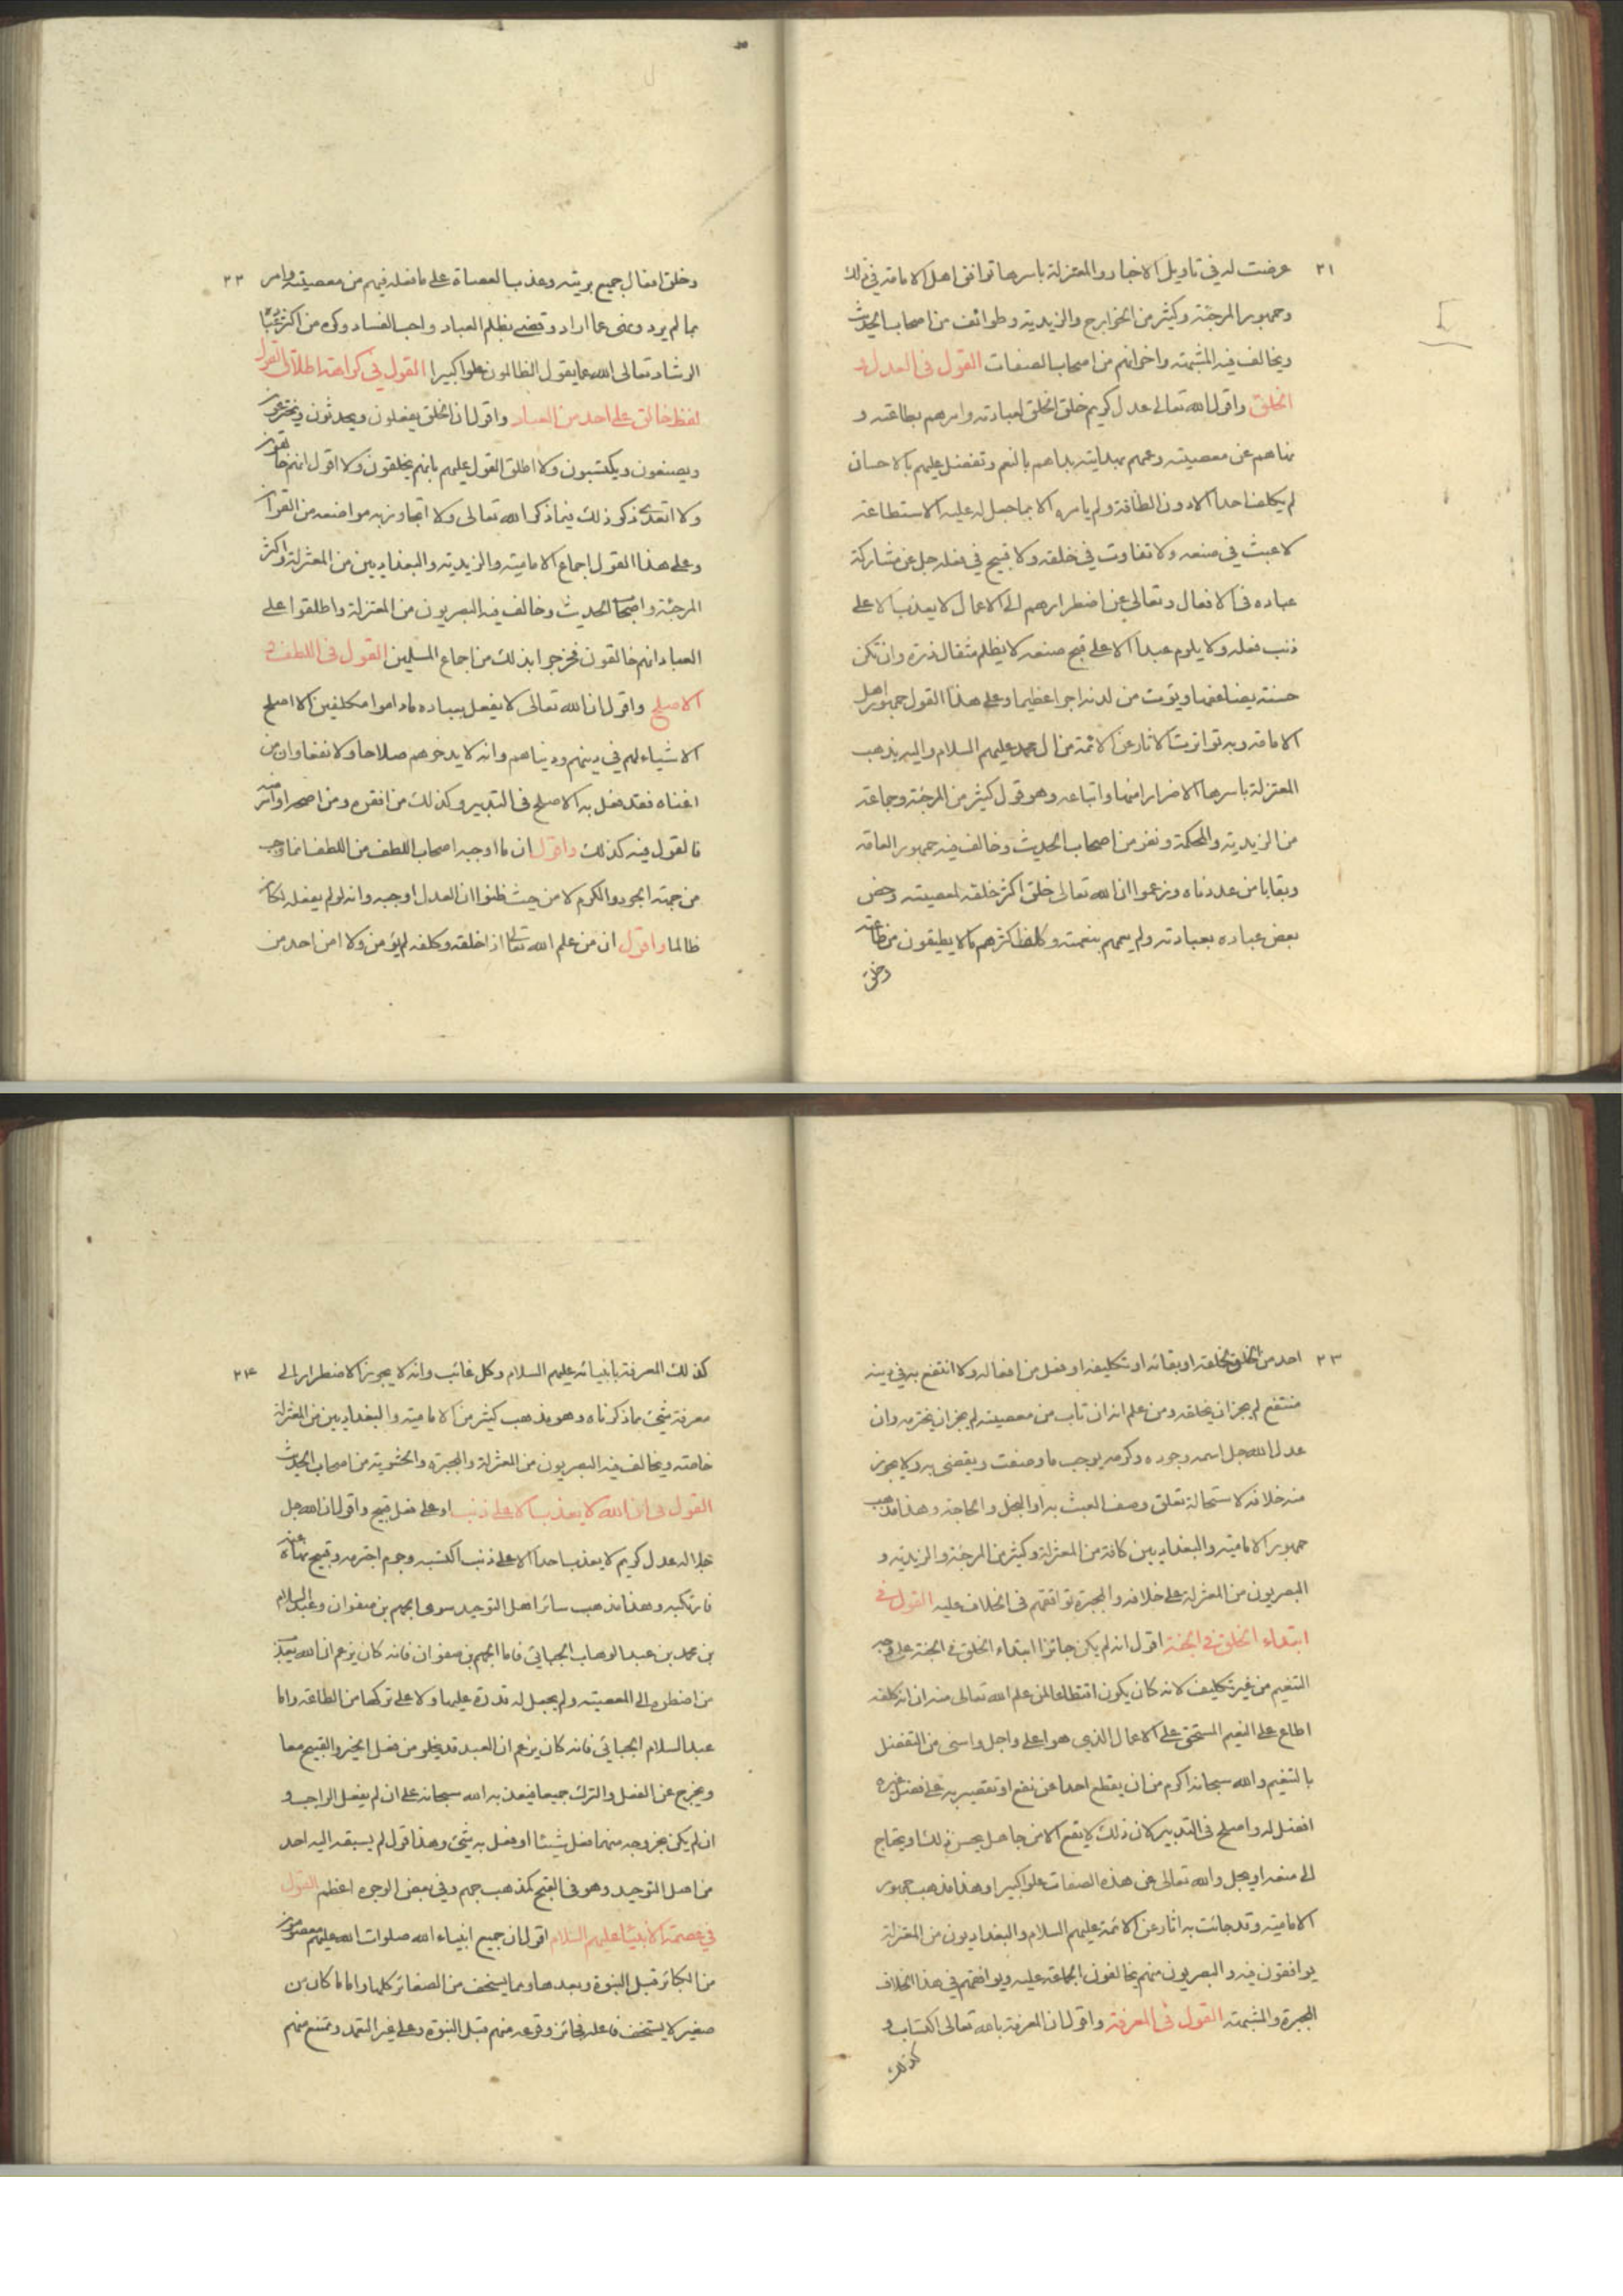 ٢١
عرضت له في تاويل الاخبار والمعتزلة باسرها توافق اهل الامامة في ذلك
وجمهور المرجئة وكثير من الخوارج والزيدية وطوائف من اصحاب الحديث
ويخالف فيه المشبهة واخوانهم من اصحاب الصفات القول في العدل و
الخلق واقول الله تعالى عدل كريم خلق الخلق لعبادته وامرهم بطاعته و
نهاهم عن معصيته وعمهم بهدايته بداهم بالنعم وتفضل عليهم بالاحسان
لم يكلف احدا الا دون الطاقة ولم يامره الا بما جعل له عليه الاستطاعة
لا عبث في صنعه ولا تفاوت في خلقه ولا قبيح في فعله جل عن مشاركة
عباده في الافعال وتعالى عن اضطرارهم الى الاعمال لا يعذب الا على
ذنب فعله ولا يلوم عبدا الا على قبيح صنعه لا يظلم مثقال ذرة وان تكن
حسنة يضاعفها ويؤت من لدنه اجرا عظيما وعلى هذا القول جمهور اهل
الامامة وبه تواترت الاثار عن الائمة من ال محمد عليهم السلام واليه يذهب
المعتزلة باسرها الا ضرارا منها واتباعه وهو قول كثير من المرجئة وجماعة
من الزيدية والمحكمة ونفر من اصحاب الحديث وخالف فيه جمهور العامة
وبقايا من عددناه وزعموا ان الله تعالى خلق اكثر خلقه لمعصيته وخص
بعض عباده بعبادته ولم يعمهم بنعمته وكلف اكثرهم ما لا يطيقون من طاعته
وخلق
٢٢
وخلق افعال جميع بريته وعذب العصاة على ما فعله فيهم من معصيته وامر
بما لم يرد ونهى عما اراد وقضى بظلم العباد واحب الفساد وكره من اكثر عباده
الرشاد تعالى الله عما يقول الظالمون علوا كبيرا القول في كراهة اطلاق القول
لفظ خالق على احد من العباد واقول ان الخلق يفعلون ويحدثون ويخترعون
ويصنعون ويكتسبون ولا اطلق القول عليهم بانهم يخلقون ولا اقول انهم خالقون
ولا اتعدى ذكر ذلك فيما ذكر الله تعالى ولا اتجاوز به مواضعه من القرآن
وعلى هذا القول اجماع الامامية والزيدية والبغداديين من المعتزلة واكثر
المرجئة واصحاب الحديث وخالف فيه البصريون من المعتزلة واطلقوا على
العباد انهم خالقون فخرجوا بذلك من اجماع المسلمين القول في اللطف و
الاصلح واقول ان الله تعالى لا يفعل بعباده ما داموا مكلفين الا اصلح
الاشياء لهم في دينهم ودنياهم وانه لا يدخرهم صلاحا ولا نفعا وان من
اغناه فقد فعل به الاصلح في التدبير وكذلك من افقره ومن اصحه او امرضه
فالقول فيه كذلك واقول ان ما اوجبه اصحاب اللطف من اللطف انما وجب
من جهة الجود والكرم لا من حيث ظنوا ان العدل اوجبه وانه لو لم يفعله لكان
ظالما واقول ان من علم الله تعالى انه اذا خلقه وكلفه لم يؤمن ولا امن احد من
٢٣
احد من الخلق بخلقه او بقائه او تكليفه او فعل من افعاله ولا انتفع به في دينه
منتفع لم يجز ان يخلقه ومن علم انه ان تاب من معصيته لم يجز ان يخترمه وان
عدل الله جل اسمه وجوده وكرمه يوجب ما وصفت ويقضى به ولا يجوز
منه خلافه لاستحالة تعلق وصف العبث به او البخل والحاجة وهذا مذهب
جمهور الامامية والبغداديين كافة من المعتزلة وكثير من المرجئة والزيدية و
البصريون من المعتزلة على خلافه والمجبرة توافقهم في الخلاف عليه القول في
ابتداء الخلق في الجنة اقول انه لم يكن جائزا ابتداء الخلق في الجنة على وجه
التنعيم من غير تكليف لانه كان يكون اقتطاعا لمن علم الله تعالى منه ان انه كلفه
اطاع على النعيم المستحق على الاعمال الذي هو اعلى واجل واسنى من التفضل
بالتنعيم والله سبحانه اكرم من ان يقطع احدا عن نفع او تقصير به على فضل غيره
افضل له واصلح في التدبير لان ذلك لا يقع الا من جاهل بحسن ذلك او يحتاج
الى منعه او بخل والله تعالى عن هذه الصفات علوا كبيرا وهذا مذهب جمهور
الامامية وقد جائت به اثار عن الائمة عليهم السلام والبغداديون من المعتزلة
يوافقون فيه والبصريون منهم يخالفون الجماعة عليه ويوافقهم في هذا الخلاف
المجبرة والمشبهة القول في المعرفة واقول ان المعرفة بالله تعالى اكتساب و
كذلك
٢٤
كذلك المعرفة بانبيائه عليهم السلام وكل غائب وانه لا يجوز الاضطرار الى
معرفة شئ مما ذكرناه وهو مذهب كثير من الامامية والبغداديين من المعتزلة
خاصة ويخالف فيه البصريون من المعتزلة والمجبرة والحشوية من اصحاب الحديث
القول في ان الله لا يعذب الا على ذنب او على فعل قبيح واقول ان الله جل
جلاله عدل كريم لا يعذب احدا الا على ذنب اكتسبه وجرم اجترمه وقبيح نهاه عنه
فارتكبه وهذا مذهب سائر اهل التوحيد سوى الجهم بن صفوان وعبد السلام
بن محمد بن عبد الوهاب الجبائي فاما الجهم بن صفوان فانه كان يزعم ان الله يعذب
من اضطره الى المعصية ولم يجعل له قدرة عليها ولا على تركها من الطاعة واما
عبد السلام الجبائي فانه كان يزعم ان العبد قد يخلو من فعل الخير والقبيح معا
ويخرج عن الفعل والترك جميعا فيعذبه الله سبحانه على ان لم يفعل الواجب و
ان لم يكن بخروجه منهما فعل شيئا او فعل به شئ وهذا قول لم يسبقه اليه احد
من اهل التوحيد وهو في القبح كمذهب جهم وفي بعض الوجوه اعظم القول
في عصمة الانبياء عليهم السلام اقول ان جميع انبياء الله صلوات الله عليهم معصومون
من الكبائر قبل النبوة وبعدها وبما يستخف من الصغائر كلها واما ما كان من
صغير لا يستخف فاعله فجائز وقوعه منهم قبل النبوة وعلى غير التعمد وتمتنع منهم